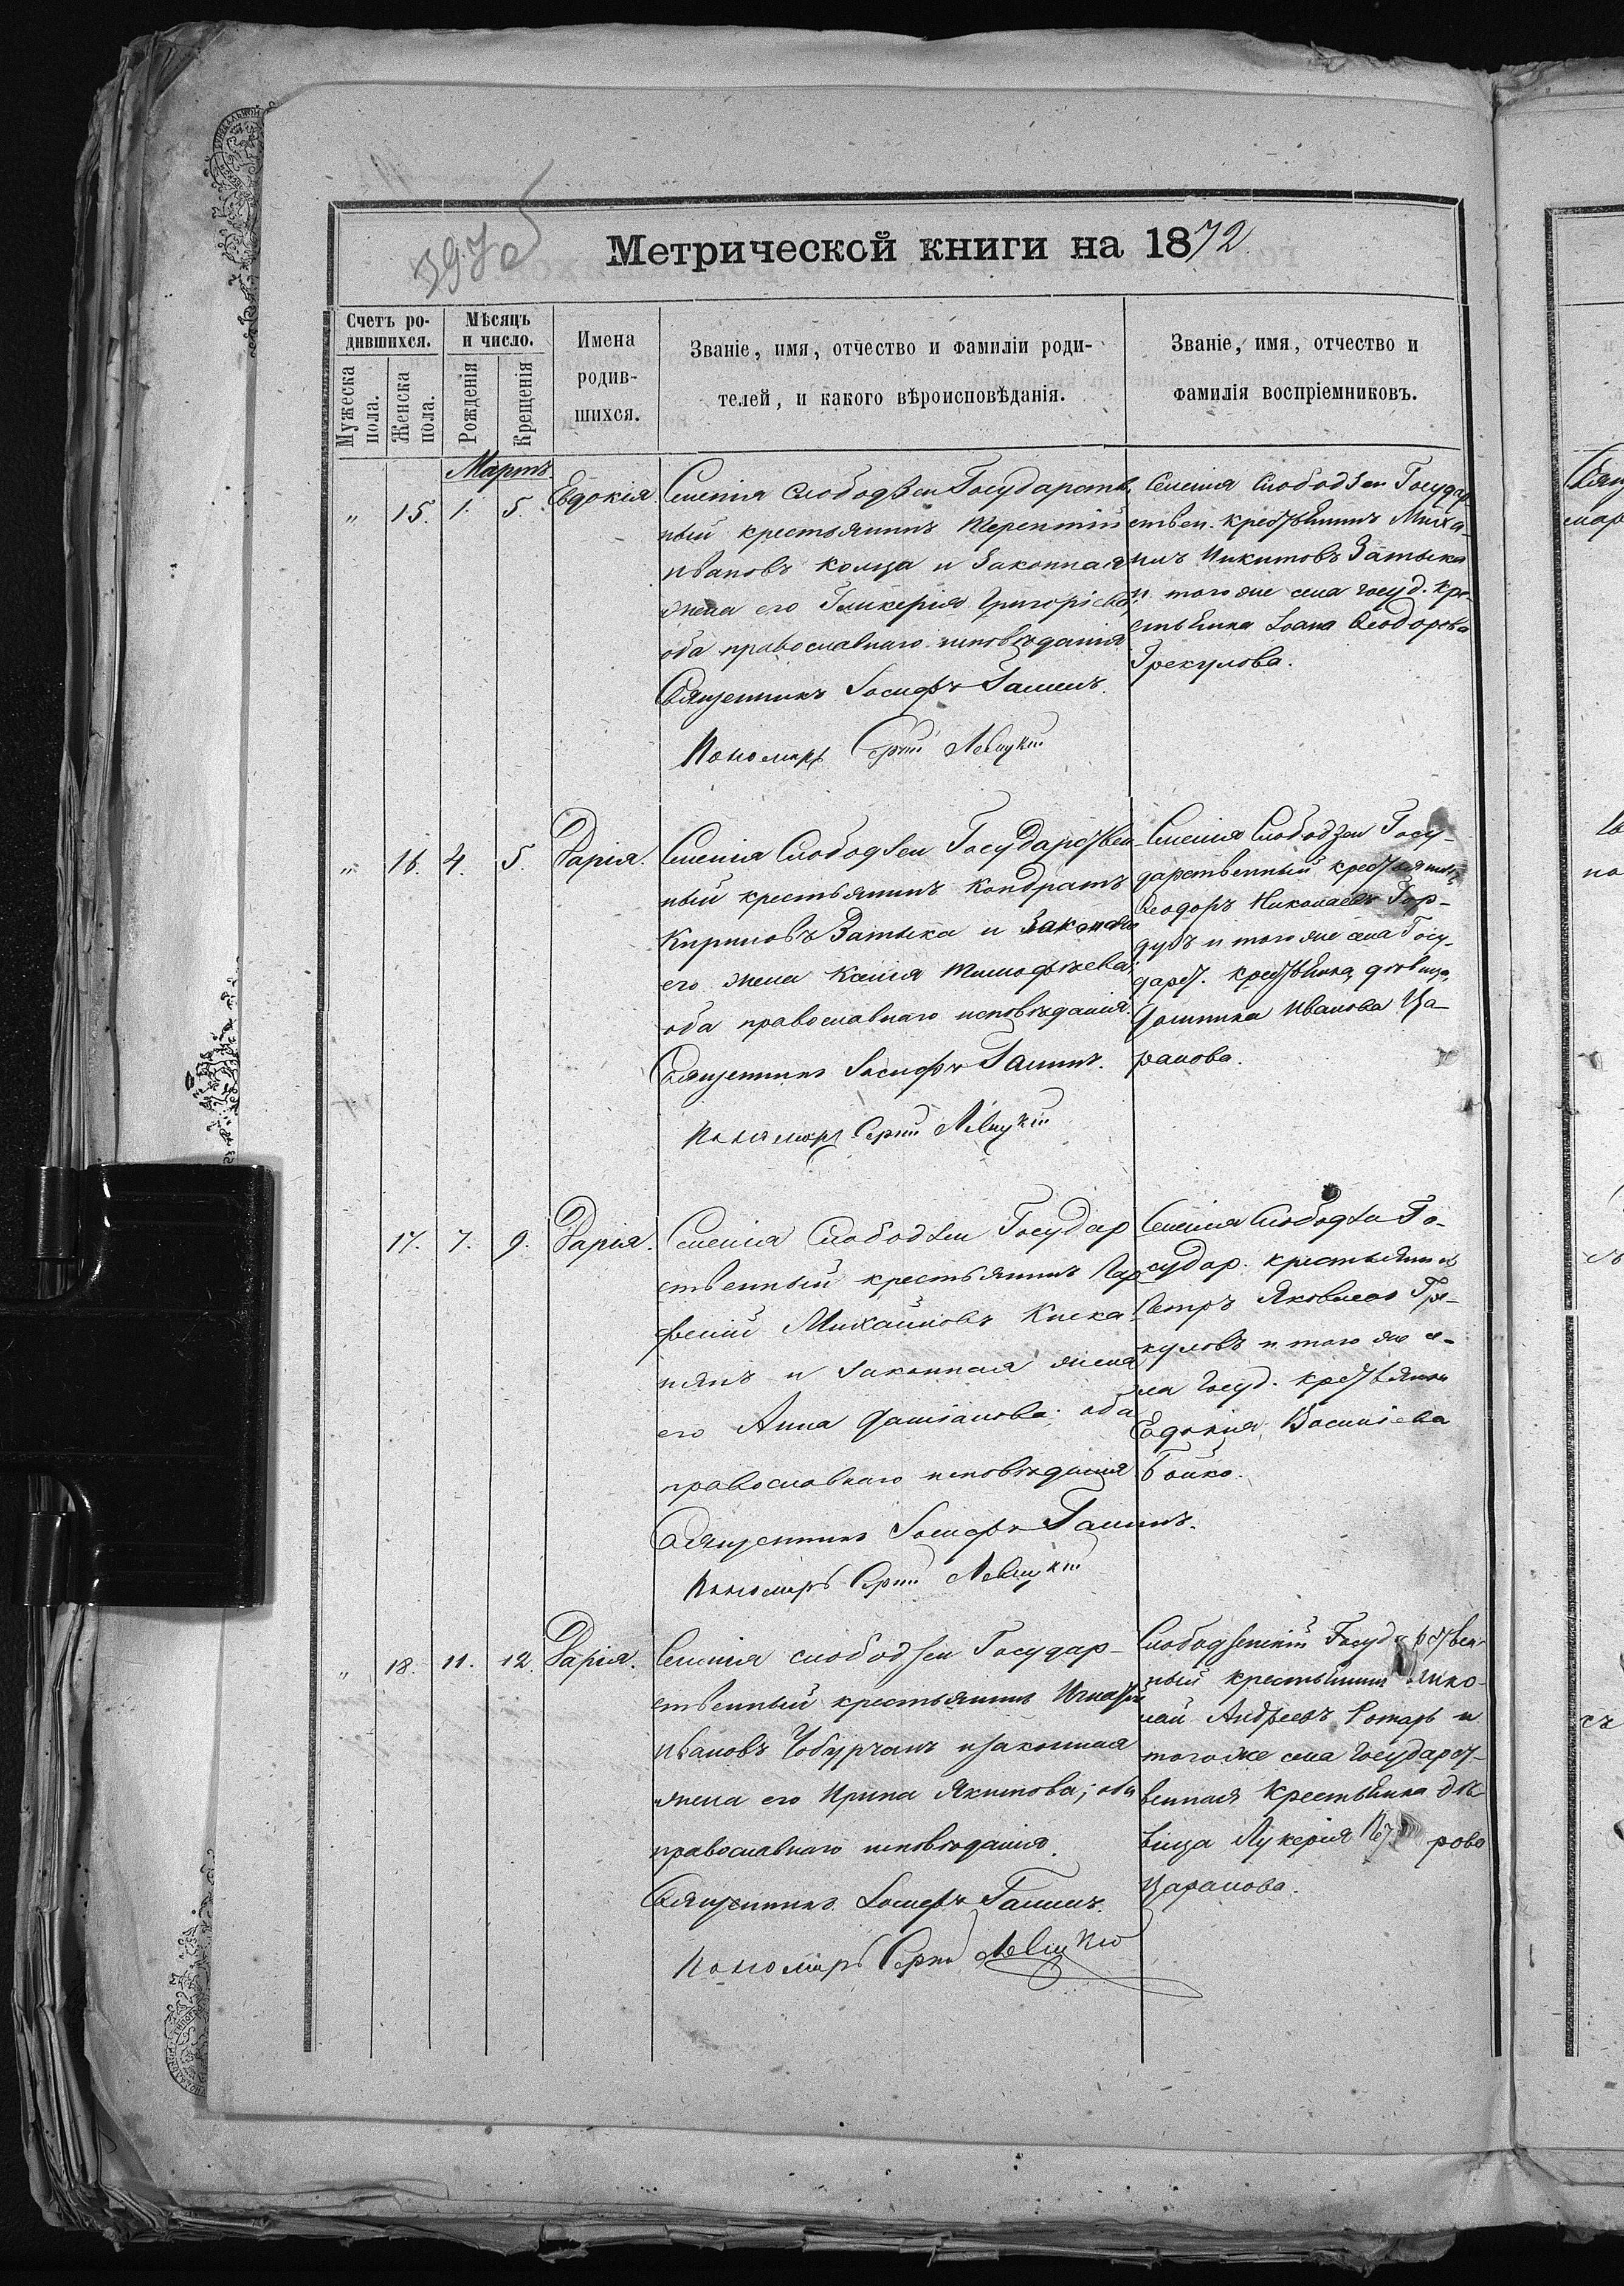 397 об
Метрической книги на 1872
Счетъ ро-
дившихся.
Мѣсяцъ
и число.
Имена
родив-
шихся.
Званіе, имя, отчество и фамиліи роди-
телей, и какого вѣроисповѣданія.
Званіе, имя, отчество и
фамилія воспріемниковъ.
Мужеска
пола.
Женска
пола.
Рожденія
Крещенія
Мартъ
" 15. 1. 5. Евдокія.
Селенія Слободзеи Государствен
ный крестьянинъ Терентій
Ивановъ Колца и законная
жена его Гликерія Григоріева,
оба православнаго исповѣданія
Священникъ Іосифъ
Пономарь Сергій Левицкій
Селенія Слободзеи Государ
ствен. крестьянинъ Миха-
илъ Никитовъ Затыка
и того же села госуд. кре-
стьянка Іоана Ѳеодорова
Грекулова.
" 16. 4. 5. Дарія.
Селенія Слободзеи Государствен-
ный крестьянинъ Кондратъ
Кириловъ Затыка и законная
его жена Ксенія Тимофѣева;
оба православнаго исповѣданія.
Священникъ Іосифъ
Пономарь Сергій Левицкій
Селенія Слободзеи Госу-
дарственный крестьянинъ
Ѳеодоръ Николаевъ
и того же села Госу-
дарст. крестьянка, дѣвица,
Домника Иванова Ца-
ранова.
17. 7. 9. Дарія.
Селенія Слободзеи Государ
ственный крестьянинъ Пар
феній Михайловъ
и законная жена
его Анна Даміанова; оба
православнаго исповѣданія
Священникъ Іосифъ
Пономарь Сергій Левицкій
Селенія Слободзеи Го-
судар. крестьянинъ
Петръ Яковлевъ Гре-
куловъ и того же се-
ла госуд. крестьянка
Евдокія Василіева
Бойко.
" 18. 11. 12. Дарія.
Селенія Слободзеи Государ-
ственный крестьянинъ Игнатій
Ивановъ Чобурчанъ и законная
жена его Ирина Якимова; оба
православнаго исповѣданія.
Священникъ Іосифъ
Пономарь Сергій Левицкій
Слободзейскій Государствен-
ный крестьянинъ Нико-
лай Андреевъ Ротарь и
того же села Государст-
венная крестьянка дѣ-
вица Лукерія Пет рова
Царанова.